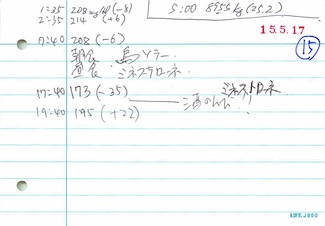 1:35 208 mg/dl (-8)
2:35 214 (+6)
5:00 89.56 kg (25.2)
15.5.17
15
7:40 208 (-6)
朝食 鳥ソテー
昼食 ミネストローネ
17:40 173 (-35)
ミネストローネ
19:40 195 (+22)
LIFE J880